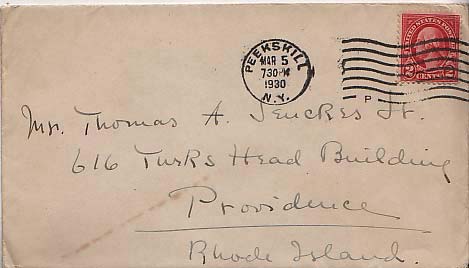 PEEKSKILL
MAR 5
730 M
1930
N.Y.
P
UNITED STATES POSTAGE
2 CENTS 2
Mr. Thomas A. Jenckes Jr.
616 Turks Head Building
Providence
Rhode Island.